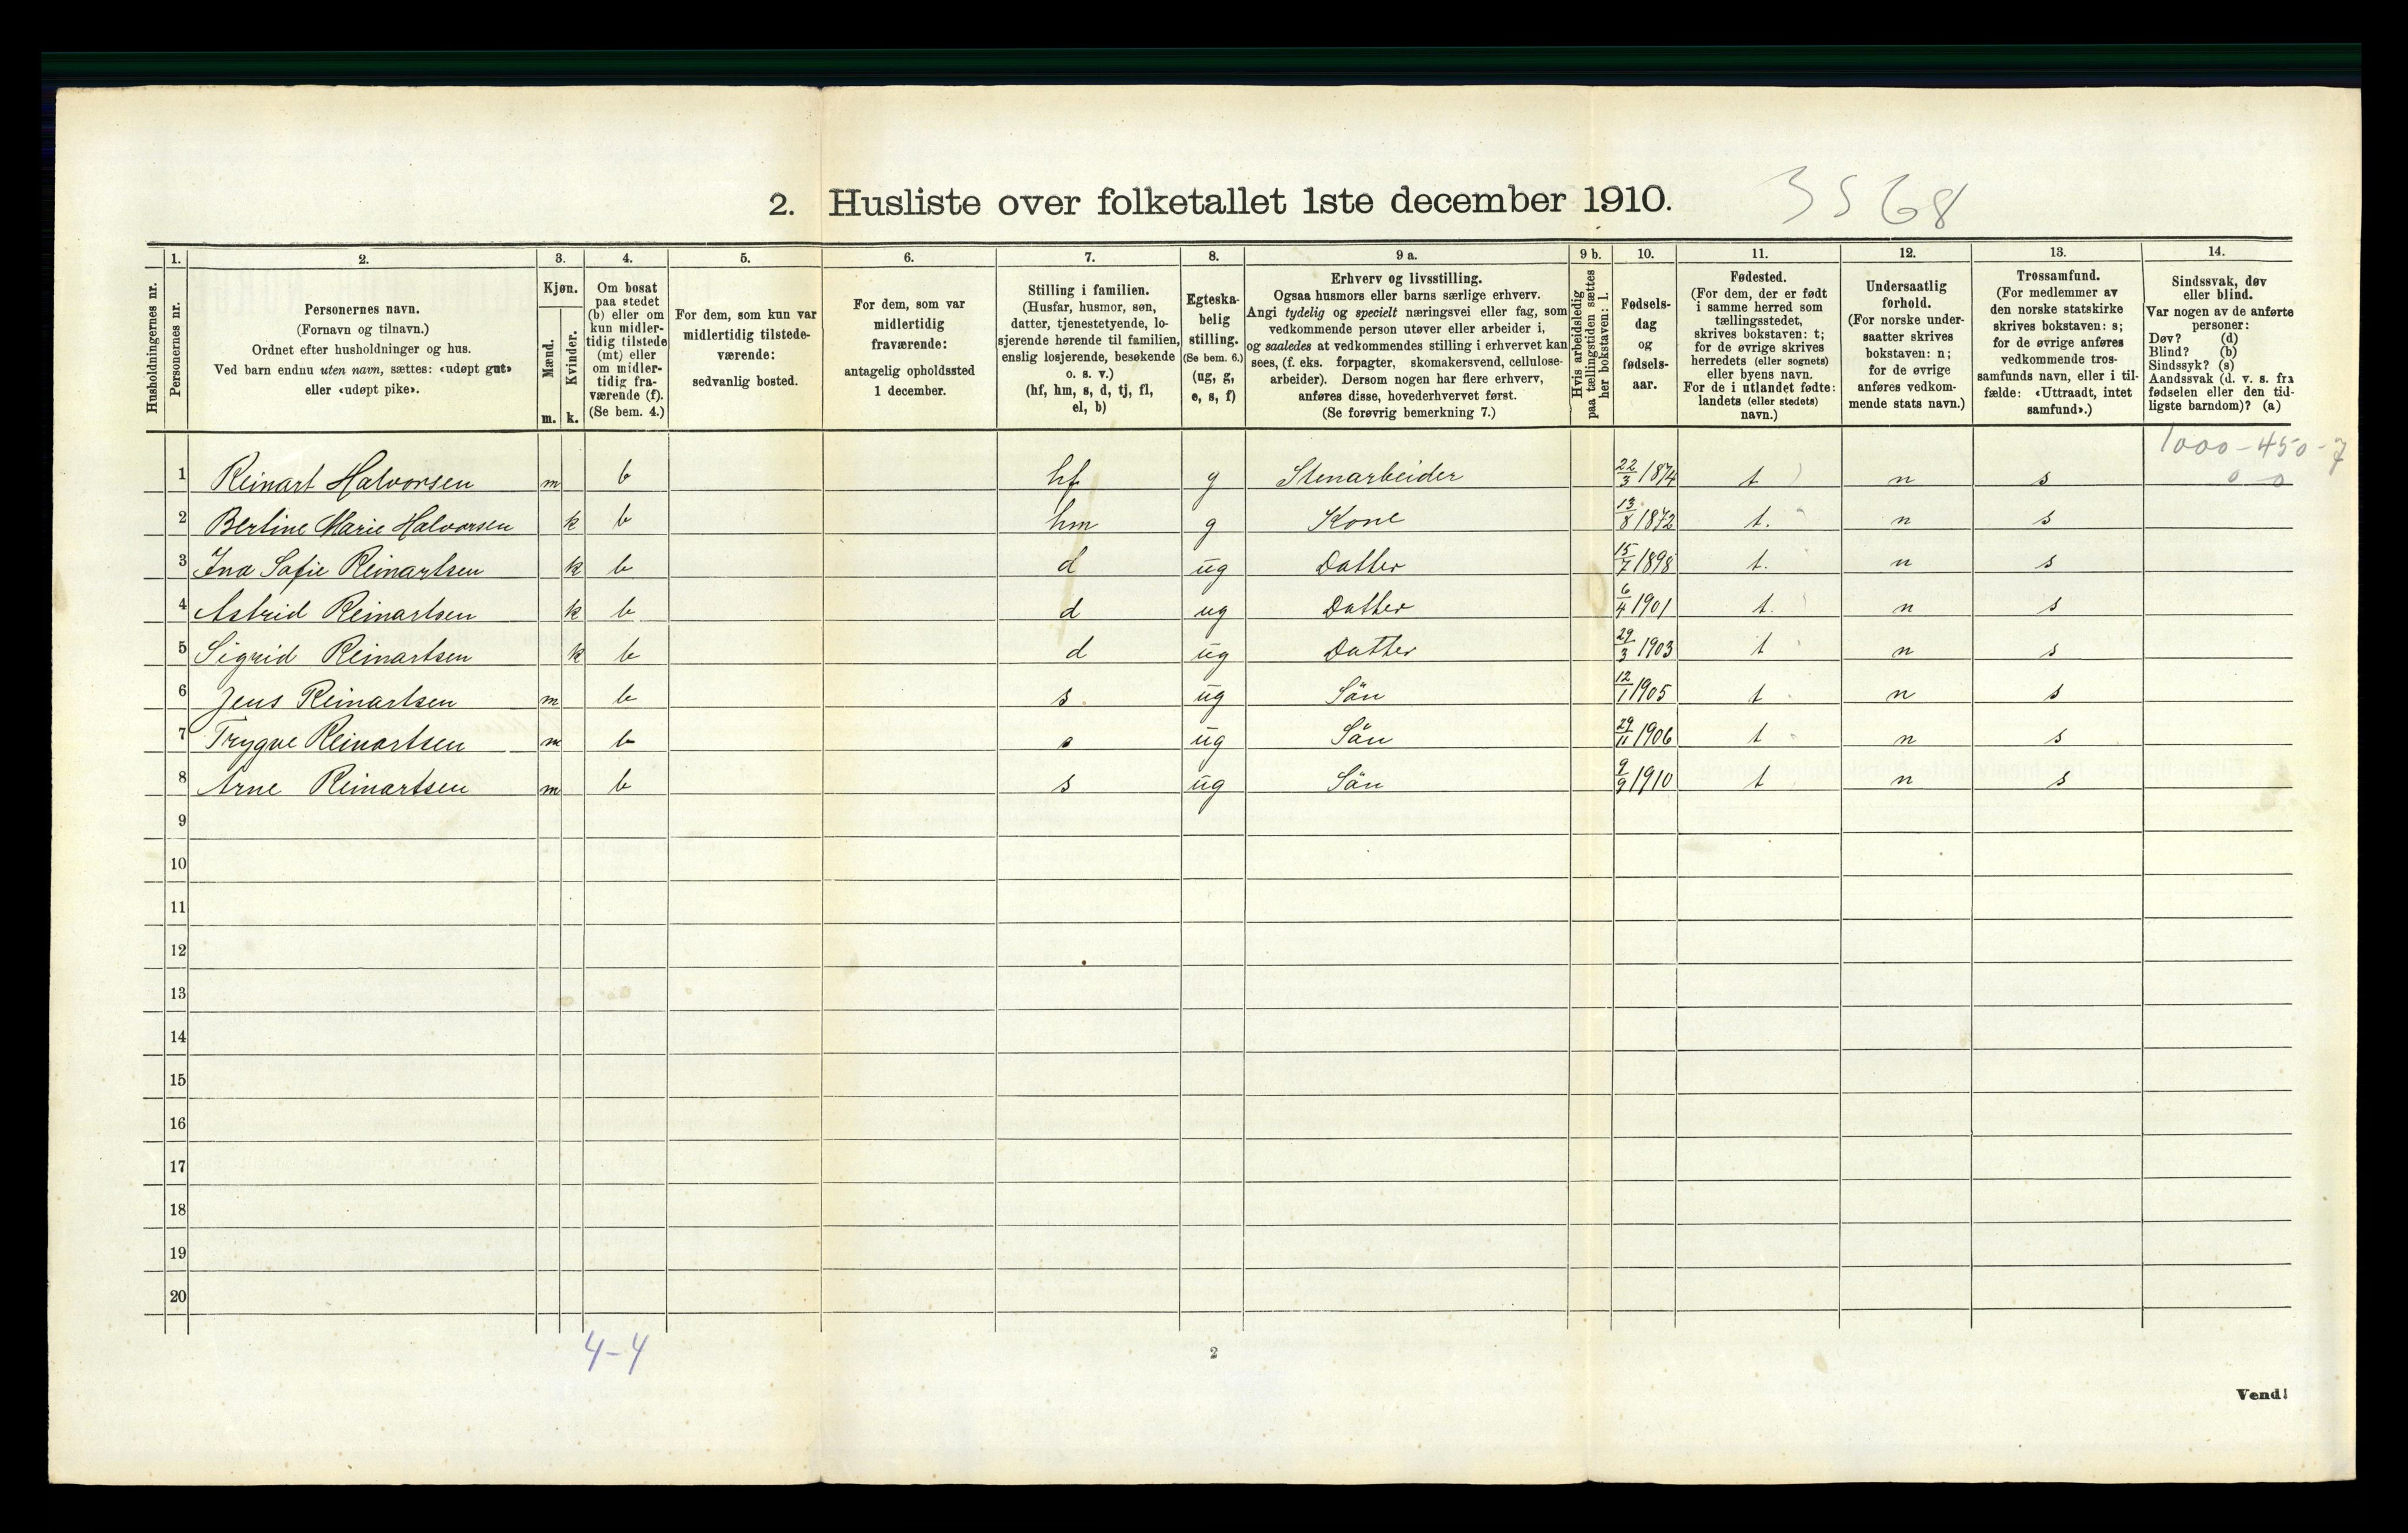 2. Husliste over folketallet 1ste december 1910.
3568
Husholdningernes nr.
1. Personernes nr.
2. Personernes navn.
(Fornavn og tilnavn.)
Ordnet efter husholdninger og hus.
Ved barn endnu uten navn, sættes: «udøpt gut»
eller «udøpt pike».
3. Kjøn.
Mænd. m.
Kvinder. k.
4. Om bosat
paa stedet
(b) eller om
kun midler-
tidig tilstede
(mt) eller
om midler-
tidig fra-
værende (f).
(Se bem. 4.)
5. For dem, som kun var
midlertidig tilstede-
værende:
sedvanlig bosted.
6. For dem, som var
midlertidig
fraværende:
antagelig opholdssted
1 december.
7. Stilling i familien.
(Husfar, husmor, søn,
datter, tjenestetyende, lo-
sjerende hørende til familien,
enslig losjerende, besøkende
o. s. v.)
(hf, hm, s, d, tj, fl,
el, b)
8. Egteska-
belig
stilling.
(Se bem. 6.)
(ug, g,
e, s, f)
9 a. Erhverv og livsstilling.
Ogsaa husmors eller barns særlige erhverv.
Angi tydelig og specielt næringsvei eller fag, som
vedkommende person utøver eller arbeider i,
og saaledes at vedkommendes stilling i erhvervet kan
sees, (f. eks. forpagter, skomakersvend, cellulose-
arbeider). Dersom nogen har flere erhverv,
anføres disse, hovederhvervet først.
(Se forøvrig bemerkning 7.)
9 b. Hvis arbeidsledig
paa tællingstiden sættes
her bokstaven: l.
10. Fødsels-
dag
og
fødsels-
aar.
11. Fødested.
(For dem, der er født
i samme herred som
tællingsstedet,
skrives bokstaven: t;
for de øvrige skrives
herredets (eller sognets)
eller byens navn.
For de i utlandet fødte:
landets (eller stedets)
navn.)
12. Undersaatlig
forhold.
(For norske under-
saatter skrives
bokstaven: n;
for de øvrige
anføres vedkom-
mende stats navn.)
13. Trossamfund.
(For medlemmer av
den norske statskirke
skrives bokstaven: s;
for de øvrige anføres
vedkommende tros-
samfunds navn, eller i til-
fælde: «Uttraadt, intet
samfund».)
14. Sindssvak, døv
eller blind.
Var nogen av de anførte
personer:
Døv? (d)
Blind? (b)
Sindssyk? (s)
Aandssvak (d. v. s. fra
fødselen eller den tid-
ligste barndom)? (a)
1000-450-7
0 0
1 Reinart Halvorsen m b hf g Stenarbeider 22/3 1874 t n s
2 Bertine Marie Halvorsen k b hm g Kone 13/8 1872 t. n s
3 Ina Sofie Reinartsen k b d ug Datter 15/7 1898 t. n s
4 Astrid Reinartsen k b d ug Datter 6/4 1901 t. n s
5 Sigrid Reinartsen k b d ug Datter 29/3 1903 t n s
6 Jens Reinartsen m b s ug Sön 12/1 1905 t n s
7 Trygve Reinartsen m b s ug Sön 29/11 1906 t n s
8 Arne Reinartsen m b s ug Sön 9/9 1910 t n s
9
10
11
12
13
14
15
16
17
18
19
20
4-4
2
Vend!